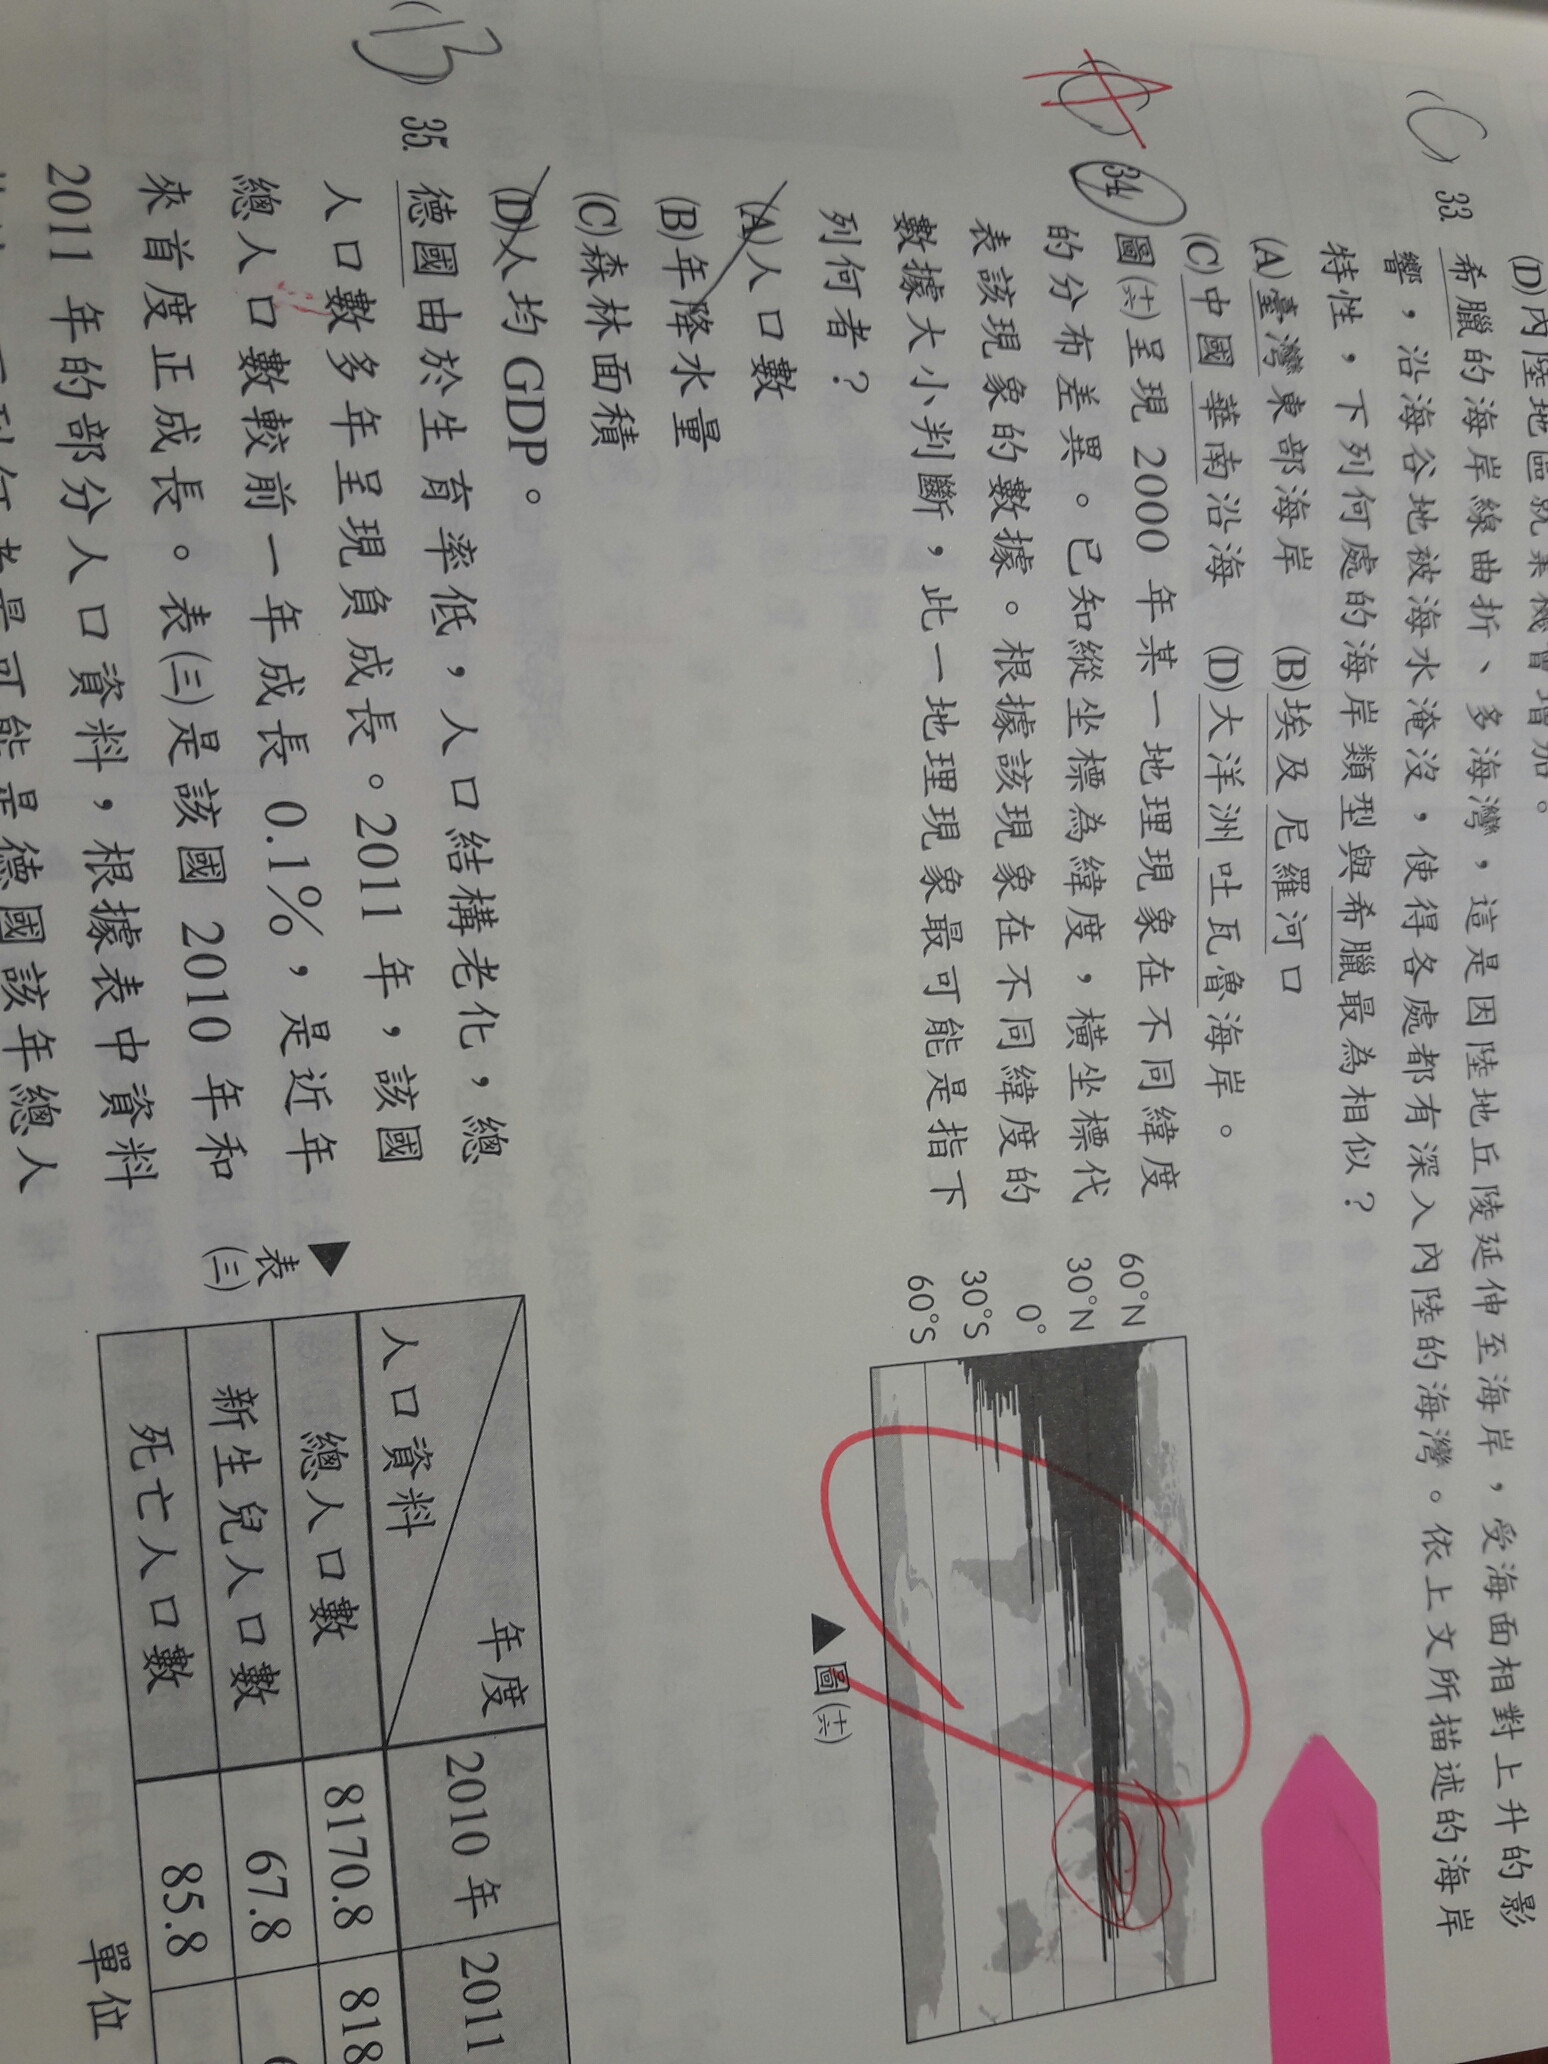 (D)內陸地區就業機會增加。
(C) 33. 希臘的海岸線曲折、多海灣，這是因陸地丘陵延伸至海岸，受海面相對上升的影
響，沿海谷地被海水淹沒，使得各處都有深入內陸的海灣。依上文所描述的海岸
特性，下列何處的海岸類型與希臘最為相似？
(A)臺灣東部海岸 (B)埃及尼羅河口
(C)中國華南沿海 (D)大洋洲吐瓦魯海岸。
34. 圖(六)呈現 2000 年某一地理現象在不同緯度
的分布差異。已知縱坐標為緯度，橫坐標代
表該現象的數據。根據該現象在不同緯度的
數據大小判斷，此一地理現象最可能是指下
列何者？
(A)人口數
(B)年降水量
(C)森林面積
(D)人均 GDP。
60°N
30°N
0°
30°S
60°S
▲圖(六)
(B) 35. 德國由於生育率低，人口結構老化，總
人口數多年呈現負成長。2011 年，該國
總人口數較前一年成長 0.1%，是近年
來首度正成長。表(三)是該國 2010 年和
2011 年的部分人口資料，根據表中資料
可能是德國該年總人
▲表(三)
單位
年度 2010 年 2011
人口資料
總人口數 8170.8 818
新生兒人口數 67.8 6
死亡人口數 85.8